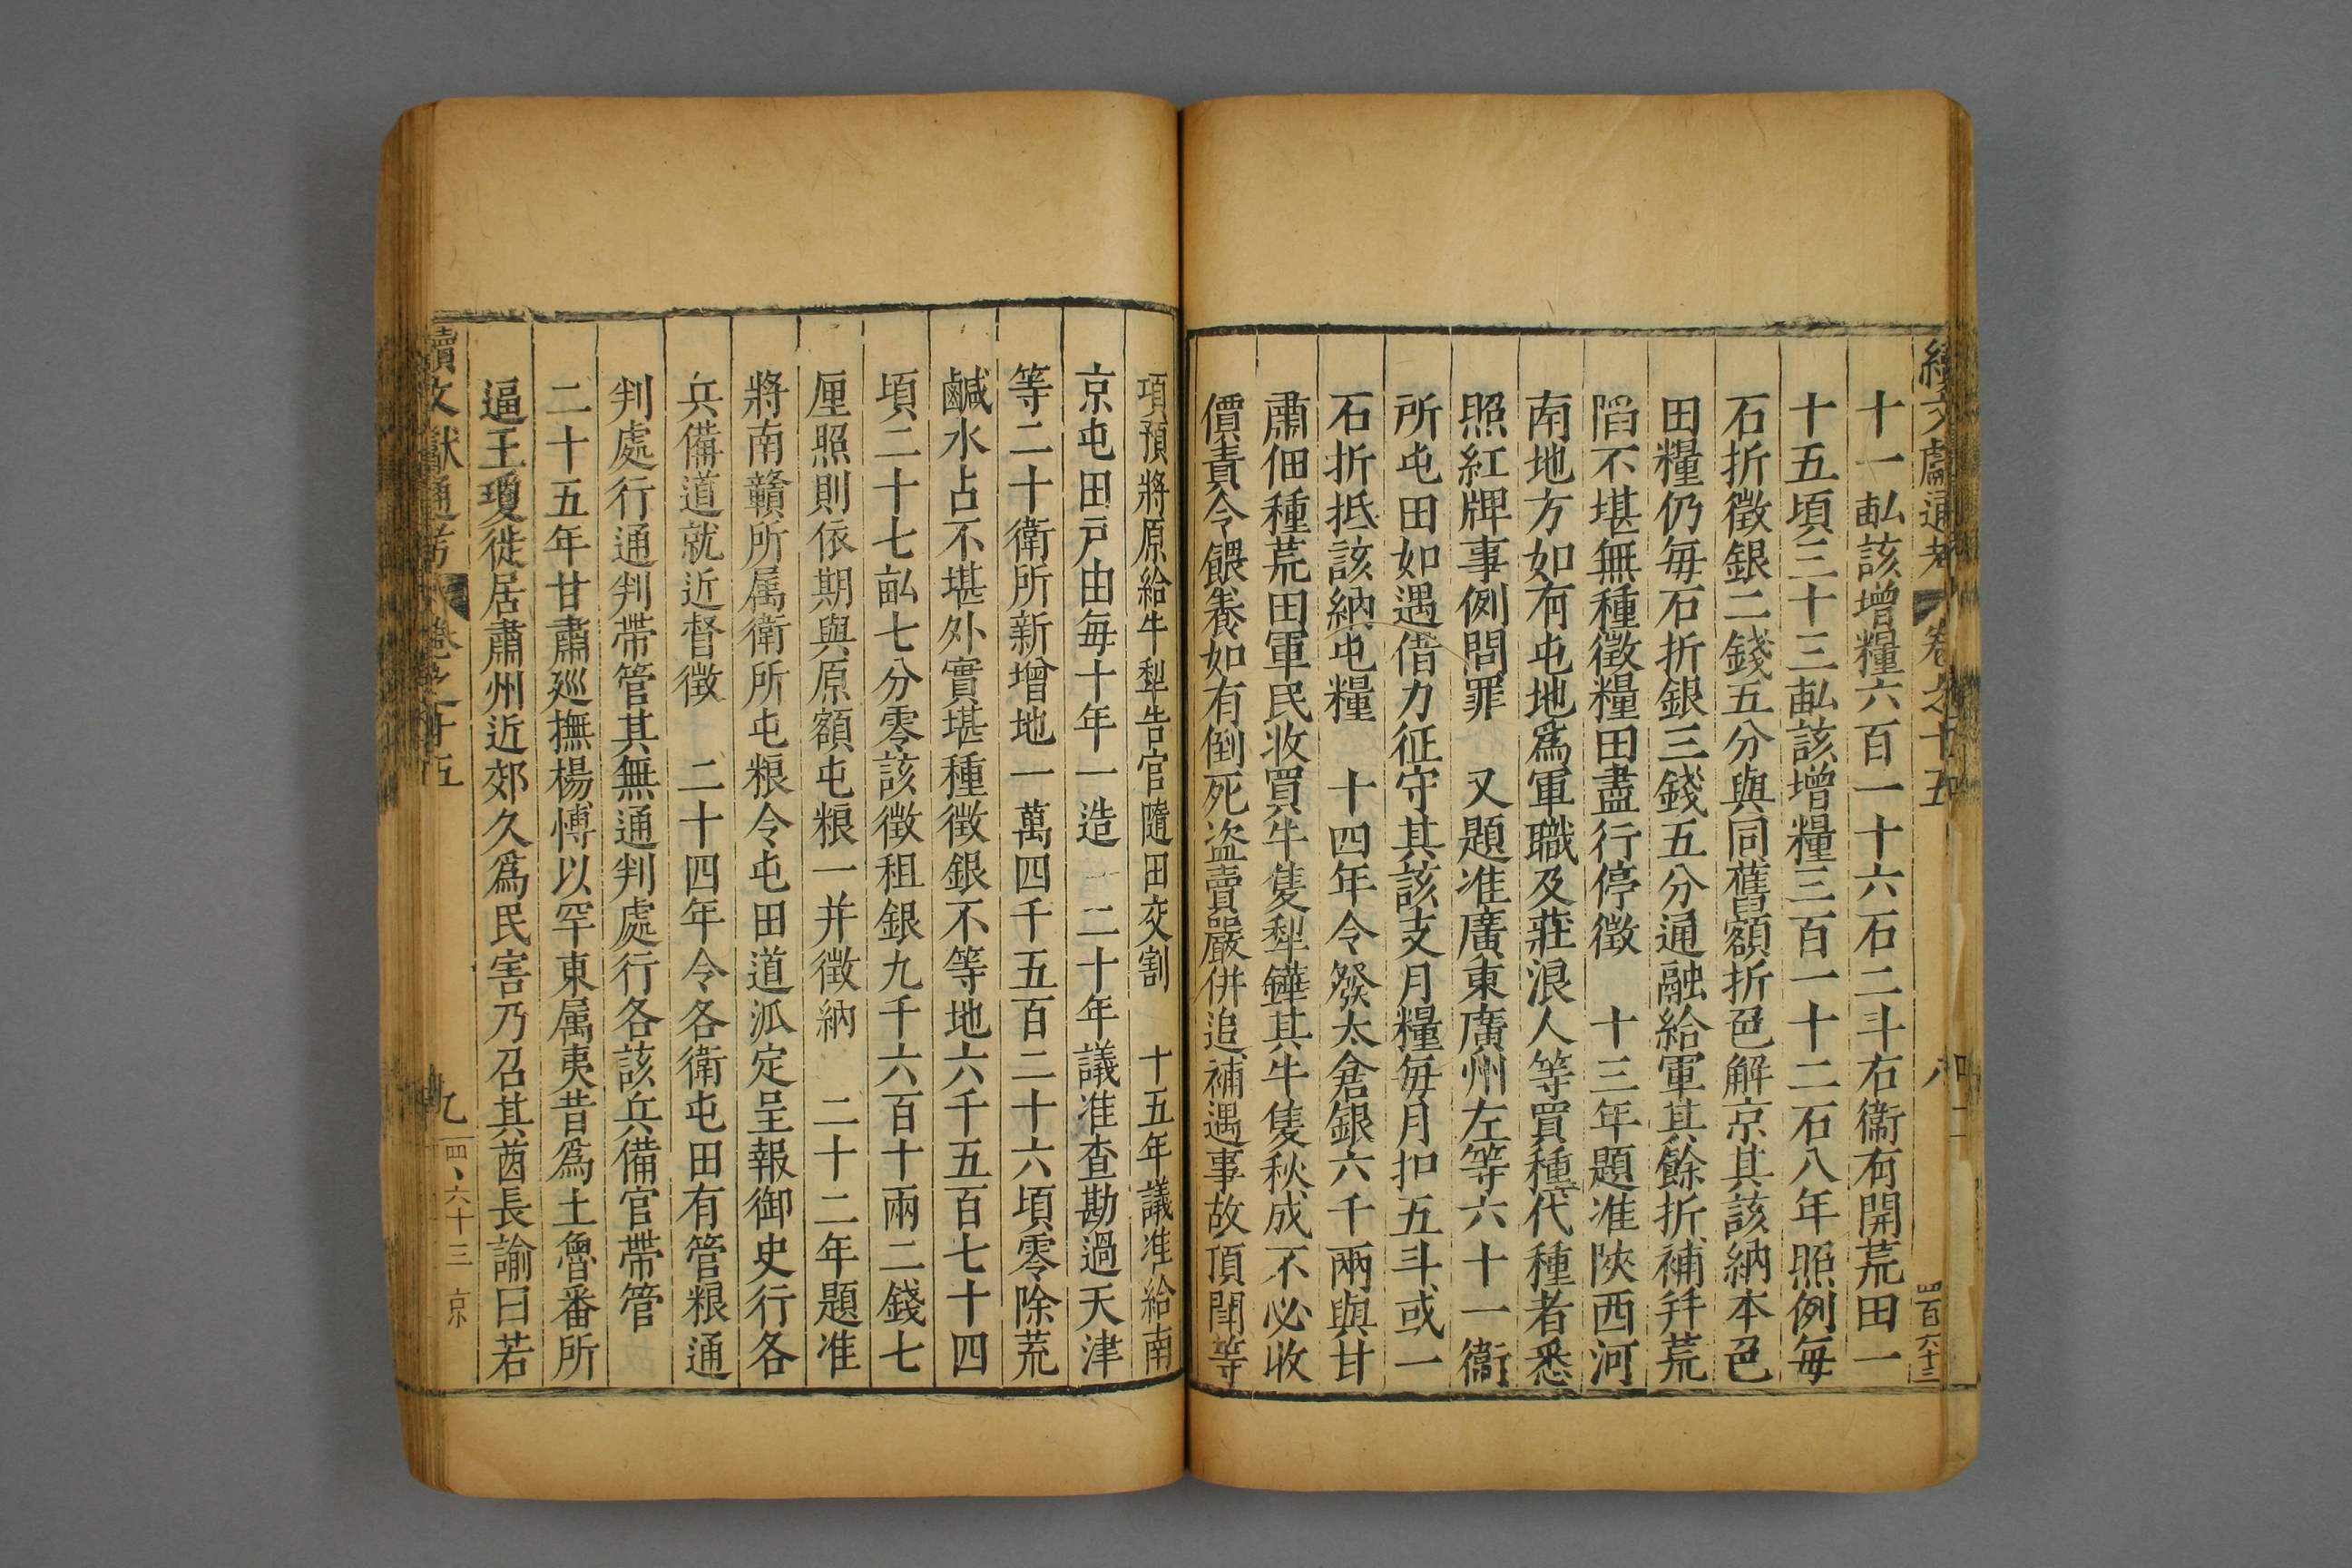 續文獻通考 卷之十五 八 四百六十三
十一畝該增糧六百一十六石二斗右衞有開荒田一
十五頃三十三畝該增糧三百一十二石八年照例每
石折徵銀二錢五分與同舊額折色解京其該納本色
田糧仍每石折銀三錢五分通融給軍其餘折補幷荒
陷不堪無種徵糧田盡行停徵 十三年題准陝西河
南地方如有屯地爲軍職及莊浪人等買種代種者悉
照紅牌事例問罪 又題准廣東廣州左等六十一衞
所屯田如遇借力征守其該支月糧每月扣五斗或一
石折抵該納屯糧 十四年令發太倉銀六千兩與甘
肅佃種荒田軍民收買牛隻犁鏵其牛隻秋成不必收
價責令餵養如有倒死盜賣嚴併追補遇事故頂閏等
項預將原給牛犁告官隨田交割 十五年議准給南
京屯田戸由每十年一造 二十年議准查勘過天津
等二十衛所新增地一萬四千五百二十六頃零除荒
鹹水占不堪外實堪種徵銀不等地六千五百七十四
頃二十七畝七分零該徵租銀九千六百十兩二錢七
厘照則依期與原額屯粮一并徵納 二十二年題准
將南贛所属衛所屯粮令屯田道派定呈報御史行各
兵備道就近督徵 二十四年令各衛屯田有管粮通
判處行通判帶管其無通判處行各該兵備官帶管
二十五年甘肅廵撫楊愽以罕東属夷昔爲土魯番所
逼王瓊徙居肅州近郊久爲民害乃召其酋長諭曰若
續文獻通考 卷之十五 九 四、六十三 京